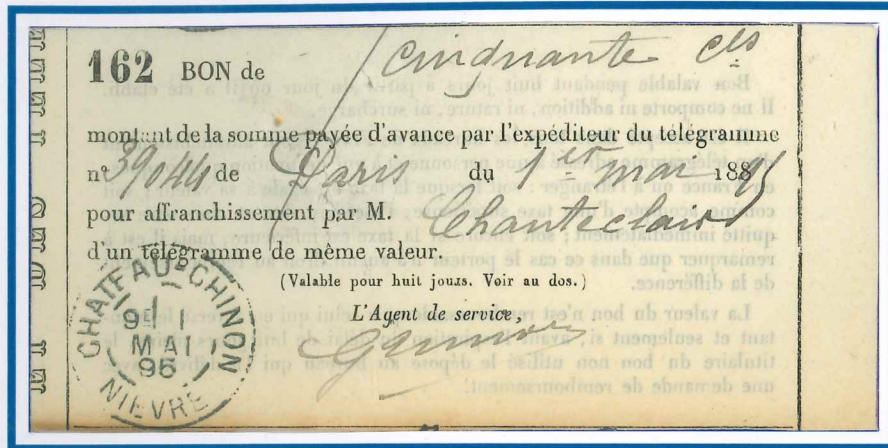 162 BON de cinquante cts
montant de la somme payée d'avance par l'expéditeur du télégramme
n° 39044 de Paris du 1er mai 1895
pour affranchissement par M. Chanteclair
d'un télégramme de même valeur.
(Valable pour huit jours. Voir au dos.)
L'Agent de service,
CHATEAU-CHINON
9E 1
MAI
95
NIEVRE